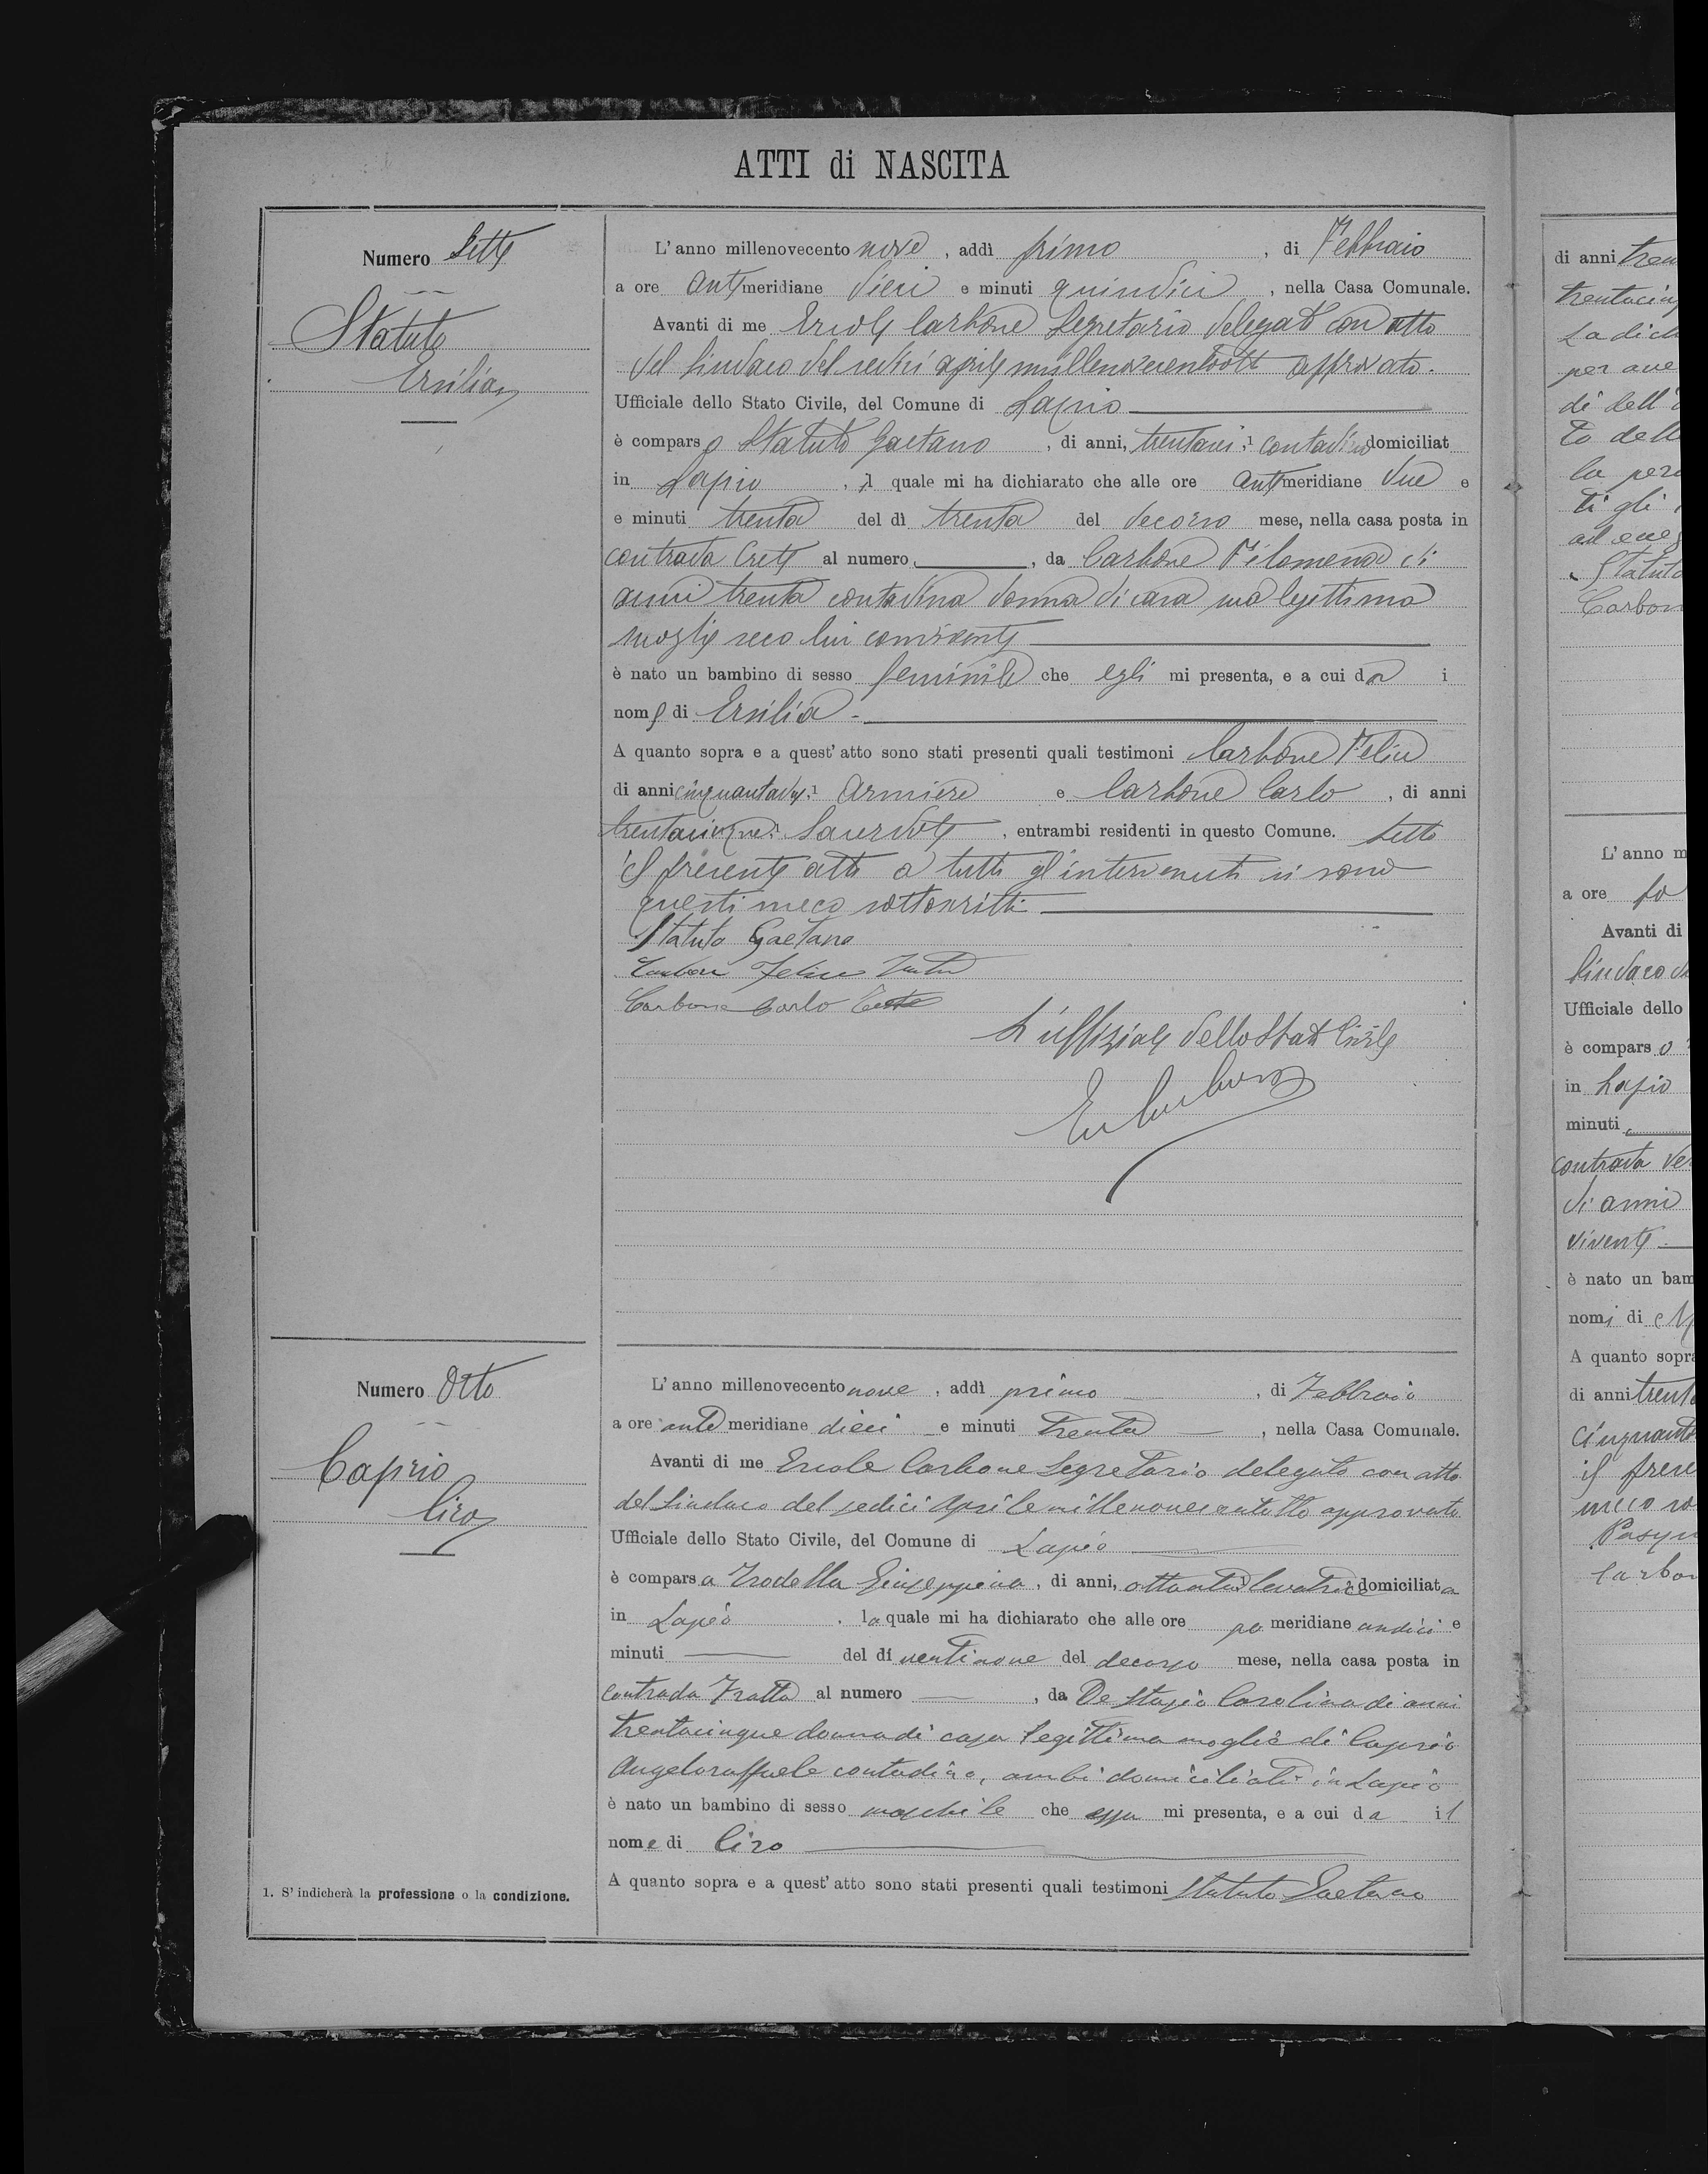 ATTI di NASCITA
Numero Sette
Statuto
Ersilia
L'anno millenovecento nove, addì primo, di Febbraio
a ore antemeridiane dieci e minuti quindici, nella Casa Comunale.
Avanti di me Ercole Carbone Segretario delegato con atto
del Sindaco del sedici aprile millenovecentootto approvato.
Ufficiale dello Stato Civile, del Comune di Lapio
è comparso Statuto Gaetano, di anni, trentasei,1 contadino domiciliat
in Lapio, il quale mi ha dichiarato che alle ore antemeridiane due e
e minuti trenta del dì trenta del decorso mese, nella casa posta in
contrada Crete al numero, da Carbone Filomena di
anni trenta contadina donna di casa sua legittima
moglie seco lui convivente
è nato un bambino di sesso feminile che egli mi presenta, e a cui da i
nome di Ersilia.
A quanto sopra e a quest'atto sono stati presenti quali testimoni Carbone Felice
di anni cinquantadue,1 armiere e Carbone Carlo, di anni
trentacinque, Sacerdote, entrambi residenti in questo Comune. Letto
il presente atto a tutti gl'intervenuti si sono
questi meco sottoscritti
Statuto Gaetano
Carbone Felice
Carbone Carlo Teste
L'uffiziale dello Stato Civile
Numero Otto
Caprio
Ciro
L'anno millenovecento nove, addì primo, di Febbraio
a ore antemeridiane dieci e minuti trenta, nella Casa Comunale.
Avanti di me Ercole Carbone Segretario delegato con atto
del Sindaco del sedici Aprile millenovecentotto approvato
Ufficiale dello Stato Civile, del Comune di Lapio
è comparsa Trodella Giuseppina, di anni, ottanta1 levatrice domiciliata
in Lapio, la quale mi ha dichiarato che alle ore po meridiane undici e
minuti del dì ventinove del decorso mese, nella casa posta in
contrada Fratta al numero, da De Stasio Carolina di anni
trentacinque donna di casa legittima moglie di Caprio
Angeloraffaele contadino, ambi domiciliati in Lapio
è nato un bambino di sesso maschile che essa mi presenta, e a cui da il
nome di Ciro
A quanto sopra e a quest'atto sono stati presenti quali testimoni Statuto Gaetano
1. S'indicherà la professione o la condizione.
di anni
La dich
per ave
di dell'
to dell
la pers
ti gli
Statuto
Carbon
L'anno m
a ore po
Avanti di
Sindaco d
Ufficiale dello
è comparso
in Lapio
minuti
contrada
di anni
vivente
è nato un bam
nomi di
A quanto sopra
di anni trent
cinquant
il prese
meco so
Pasqu
Carbon